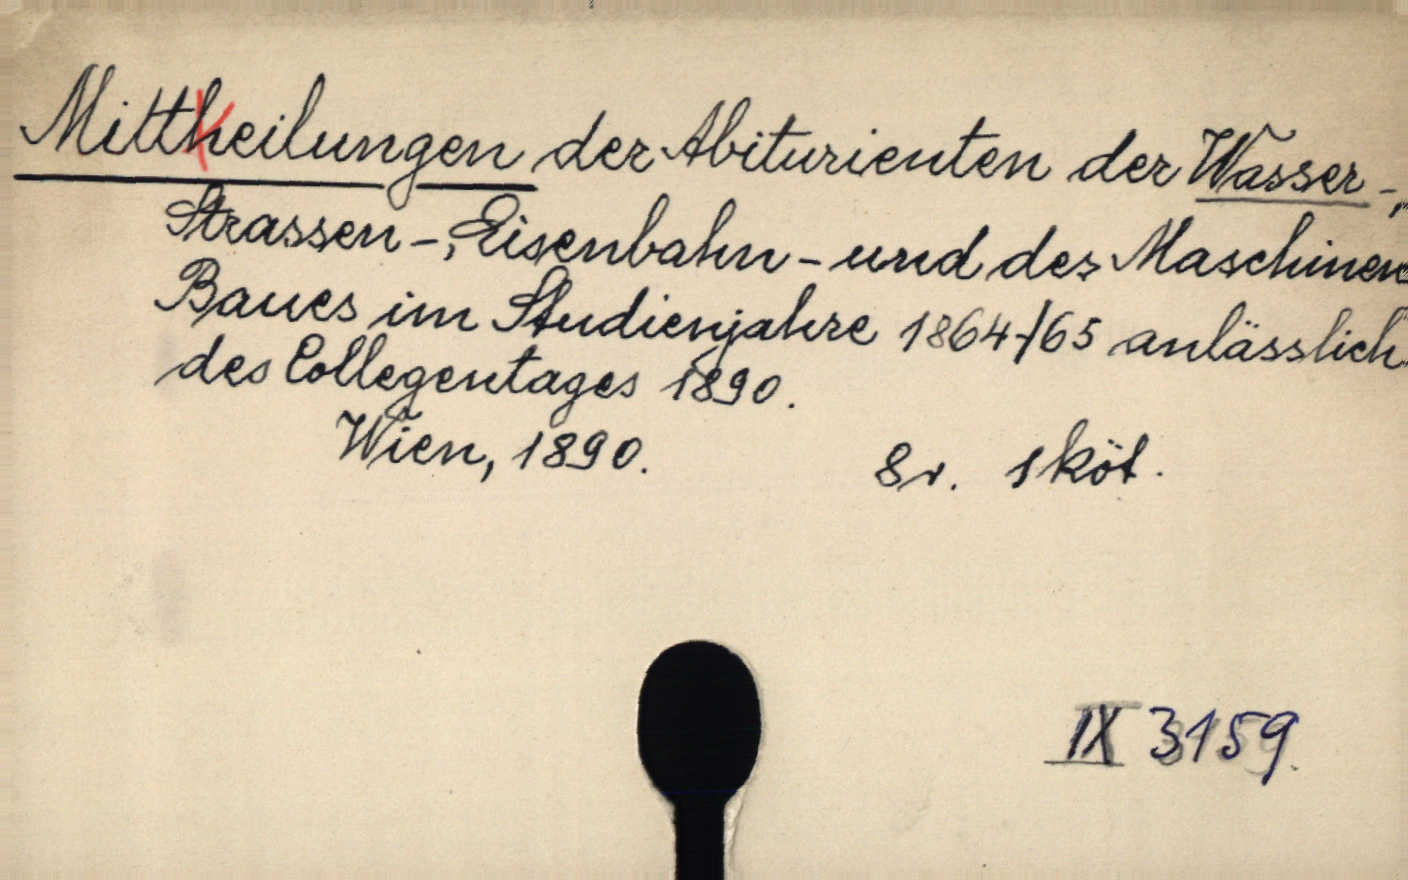 Mittheilungen der Abiturienten der Wasser-,
Strassen-, Eisenbahn- und des Maschinen
Baues im Studienjahre 1864/65 anlässlich
des Collegentages 1890.
Wien, 1890. 8r. 1 köt.
IX 3159.